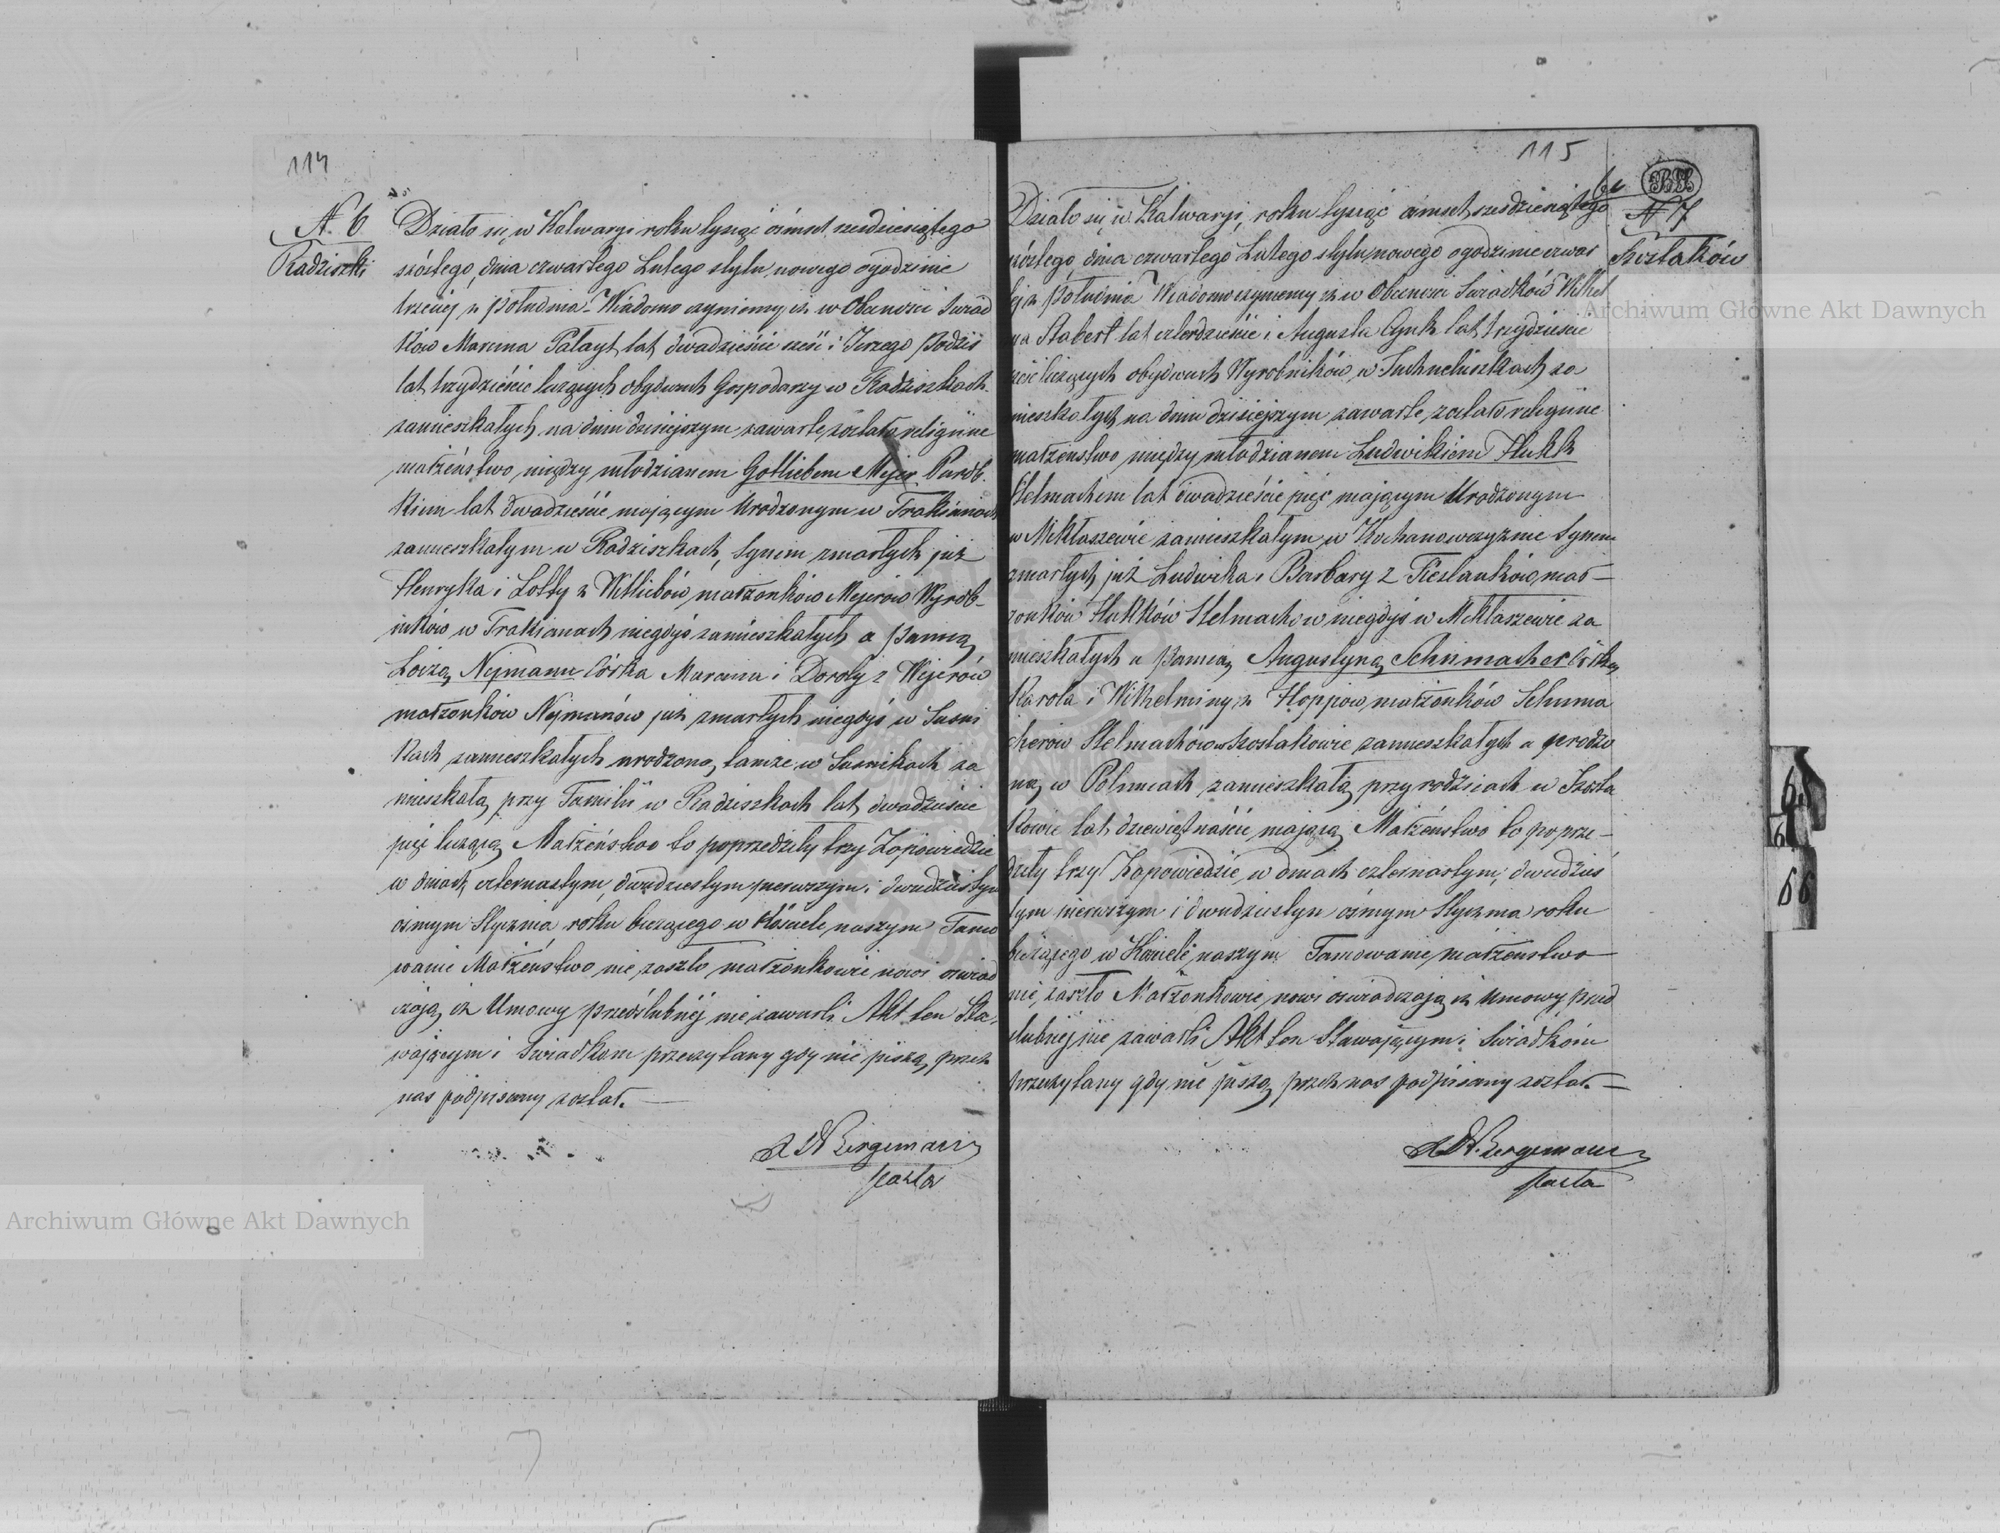 114
N. 6
Radziszki
Działo się w Kalwaryi roku tysiąc ośmset sześdziesiątego
szóstego, dnia czwartego Lutego stylu nowego o godzinie
trzeciej z południa. Wiadomo czynimy iż w Obecności Świad
ków Marcina Palayt lat dwadzieście sześć i Jerzego
lat trzydzieście liczących obydwuch Gospodarzy w Radziszkach
zamieszkałych na dniu dzisiejszym zawarte zostało religijne
małżeństwo między młodzianem Gotliebem Mejer Parob-
kiem lat dwadzieście mającym Urodzonym w Trakianach
zamieszkałym w Radziszkach, Synem zmarłych już
Henryka i Lotty z małżonków Mejerów Wyrob-
ników w Trakianach niegdyś zamieszkałych a Panną
Loizą Nejmann Córka Marcina i Doroty z Wejerów
małżonków Nejmanów już zmarłych niegdyś w Sasni
kach zamieszkałych urodzoną tamże w Sasnikach za
mieszkałą przy Familii w Radziszkach lat dwadzieście
pięć liczącą Małżeństwo to poprzedziły trzy Zapowiedzie
w dniach czternastym, dwudziestym pierwszym i dwudziestym
ósmym Stycznia roku bieżącego w Kościele naszym Tamo
wanie Małżeństwo nie zaszło małżonkowie nowi oświad
czają iż Umowy przedślubnéj nie zawarli. Akt ten Sta-
wającym i Świadkom przeczytany gdy nie piszą, przez
nas podpisany został.
Bergemann
Pastor
115
N 7
Szostaków
Działo się w Kalwaryi, roku tysiąc ośmset sześdziesiątego
szóstego, dnia czwartego Lutego stylu nowego o godzinie czwar
tej z południa Wiadomo czynimy iż w Obecności Świadków Wilhel
ma Stabert lat czterdzieście i Augusta lat trzydzieście
sześć liczących obydwuch Wyrobników w za
mieszkałych na dniu dzisiejszym zawarte zostało religijne
małżeństwo między młodzianem Ludwikiem Hukk
Stelmachem lat dwadzieście pięć mającym Urodzonym
w Mikłaszewie zamieszkałym w Kochanowczyznie Synem
zmarłych już Ludwika i Barbary z mał-
żonków Hukków Stelmachów niegdyś w Mikłaszewie za
mieszkałych a Panną Augustyną Schumacher Córką
Karola i Wilhelminy z Hoppow małżonków Schuma
cherów Stelmachów w Szostakowie zamieszkałych a urodzo
ną w zamieszkałą przy rodzicach w Szosta
kowie lat dziewiętnaście mającą Małżeństwo to poprze-
dziły trzy Zapowiedzie w dniach czternastym, dwudzies
tym pierwszym i dwudziestym ósmym Stycznia roku
bieżącego w Kościele naszym Tamowanie małżeństwo
nie zaszło Małżonkowie nowi oświadczają iż Umowy przed
ślubnéj nie zawarli Akt ten Stawającym i Świadkom
przeczytany gdy nie piszą przez nas podpisany został.
Bergemann
Pastor
66
Archiwum Główne Akt Dawnych
Archiwum Główne Akt Dawnych